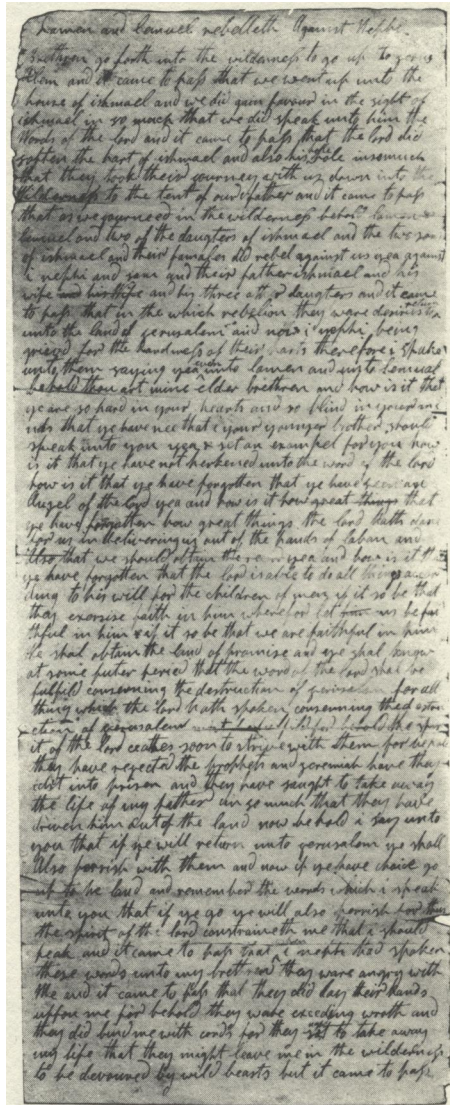 Laman and Lemuel rebelleth Against Nephi
Brethren go forth into the wilderness to go up to jerus
alem and it came to pass that we went up unto the
house of ishmael and we did gain favour in the sight of
ishmael in so much that we did speak unto him the
Words of the lord and it came to pass that the lord did
soften the hart of ishmael and also his hole insomuch
that they took their journey with us down into the
Wilderness to the tent of our father and it came to pass
that as we journeed in the wilderness behold laman &
lemuel and two of the daugters of ishmael and the two sons
of ishmael and their famalies did rebel against us yea against
i nephi and sam and their father ishmael and his
wife and his wife and his three other daugters and it came
to pass that in the which rebelion they ware desirus to return
unto the land of jerusalem and now i nephi being
grieved for the hardness of their harts therefore i spake
unto them saying yea even unto laman and unto lemuel
behold thou art mine elder brethren and how is it that
ye are so hard in your hearts and so blind in your mi
nds that ye have need that i your younger brother should
speak unto you yea & set an exampel for you now
is it that ye have not herkened unto the word of the lord
how is it that ye have forgotten that ye have seen an
Angel of the lord yea and how is it how great things that
ye have forgotten how great things the lord hath done
for us in delivering us out of the hands of laban and
Also that we should obtain the record yea and how is it th
ye have forgotten that the lord is able to do all things accor
ding to his will for the children of men if it so be that
they exersise faith in him wherefor let us be fai
thful in him & if it so be that we are faithful in him
we shal obtain the land of promise and ye shal know
at some futer period that the word of the lord shal be
fulfild conserning the destruction of jerusalem for all
thing which the lord hath spoken conserning the destru
ction of jerusalem must be fulfild for behold the spir
it of the lord ceathes soon to strive with them for behold
they have rejected the prophets and jeremiah have they
cast into prison and they have saught to take away
the life of my father in so much that they have
driven him out of the land now behold i say unto
you that if ye will return unto jerusalem ye shall
Also perrish with them and now if ye have choice go
up to the land and remember the words which i speak
unto you that if ye go ye will also perrish for thus
the spirit of the lord constraineth me that i should
speak and it came to pass that when i nephi had spoken
these words unto my brethren they ware angry with
me and it came to pass that they did lay their hands
uppon me for behold they ware exceding wroth and
they did bind me with cords for they saught to take away
my life that they might leave me in the wilderness
to be devoured by wild beasts but it came to pass